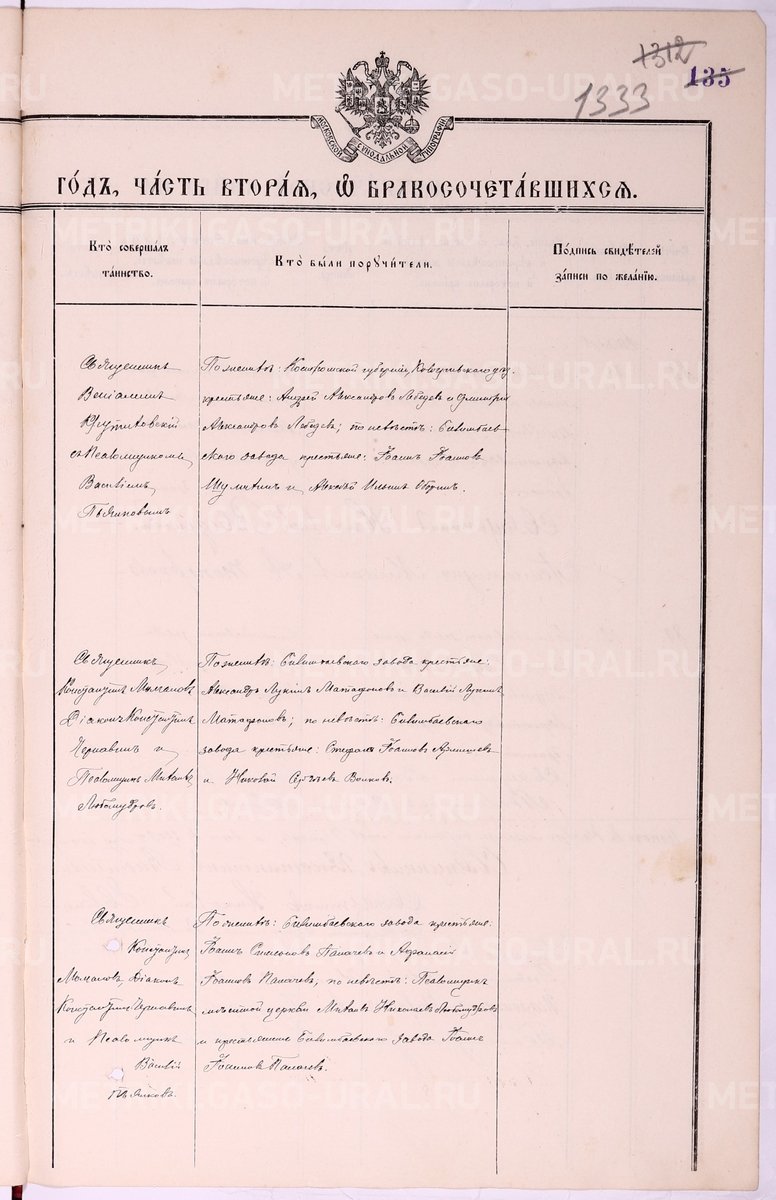 1312
135
1333
МОСКОВСКОЙ СѴНОДАЛЬНОЙ ТИПОГРАФІИ
ГО́ДЪ, ЧА́СТЬ ВТОРА́Я, Ѡ БРАКОСОЧЕТА́ВШИХСЯ.
Кто̀ соверша́лъ
та́инство.
Кто̀ бы́ли порꙋчи́тели.
По́дпись свидѣ́телей
за́писи по жела́нїю.
Священникъ
Веніаминъ
съ Псаломщикомъ
Василіемъ
По женихѣ: Костромской губерніи, Кологривскаго
крестьяне: Андрей Александровъ Лебедевъ и Димитрій
Александровъ Лебедевъ; по невѣстѣ: Билимбаев-
скаго завода крестьяне: Іоаннъ Іоанновъ
и Алексѣй Ильинъ
Священникъ
Константинъ
Діаконъ Константинъ
Чернавинъ и
Псаломщикъ Михаилъ
Любомудровъ.
По женихѣ: Билимбаевскаго завода крестьяне:
Александръ Лукинъ Матафоновъ и Василій Лукинъ
Матафоновъ; по невѣстѣ: Билимбаевскаго
завода крестьяне: Стефанъ Іоанновъ
и Николай Сергѣевъ Волковъ.
Священникъ
Константинъ
Діаконъ
Константинъ Чернавинъ
и Псаломщикъ
Василій
По женихѣ: Билимбаевскаго завода крестьяне:
Іоаннъ Симеоновъ Палачевъ и Афанасій
Іоанновъ Палачевъ; по невѣстѣ: Псаломщикъ
мѣстной церкви Михаилъ Николаевъ Любомудровъ
и крестьянинъ Билимбаевскаго завода Іоаннъ
Іоанновъ Палачевъ.
METRIKI.GASO-URAL.RU